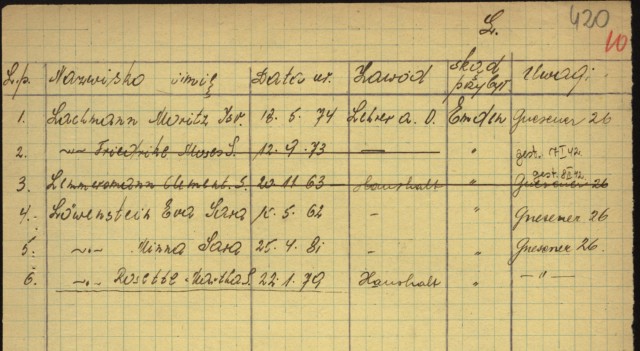 L. 420
10
L.p. Nazwisko imię Data ur. Zawód skąd przybył Uwagi
1. Lachmann Moritz Isr. 18.5.74 Lehrer a.D. Emden Gnesener 26
2. -„- Friedrike Moses S. 12.9.73 — „ gest. 17 I 42.
gest. 8 III 42.
3. Lemmersmann Clement. S. 20 11 63 Haushalt „ Gnesener 26
4. Löwenstein Eva Sara 15.5.62 - „ Gnesener 26
5. -„- Minna Sara 25.4.81 - „ Gnesener 26.
6. -„- Rosette Martha S. 22.1.79 Haushalt „ -„-